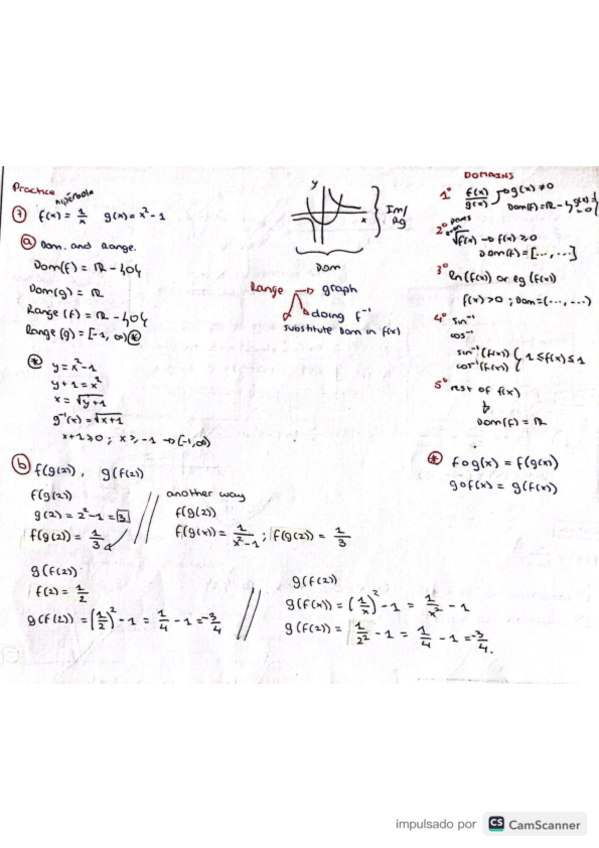 Practice
hipérbola
7 f(x) = 1/x g(x) = x² - 1
a Dom. and Range.
Dom(f) = ℝ - {0}
Dom(g) = ℝ
Range (f) = ℝ - {0}
Range (g) = [-1, ∞) *
* y = x² - 1
y + 1 = x²
x = √(y+1)
g⁻¹(x) = √(x+1)
x+1 ≥ 0 ; x ≥ -1 → [-1, ∞)
y
x
Im/
Rg
Dom
Range → graph
doing f⁻¹
substitute Dom in f(x)
DOMAINS
1° f(x)/g(x) → g(x) ≠ 0
Dom(f) = ℝ - {g(x) = 0}
2° pares
even
√f(x) → f(x) ≥ 0
Dom(f) = [..., ...]
3° ln(f(x)) or lg(f(x))
f(x) > 0 ; Dom = (..., ...)
4° sin⁻¹
cos⁻¹
sin⁻¹(f(x))
cos⁻¹(f(x)) } 1 ≤ f(x) ≤ 1
5° rest of f(x)
Dom(f) = ℝ
* fog(x) = f(g(x))
gof(x) = g(f(x))
b f(g(2)), g(f(2))
f(g(2))
g(2) = 2² - 1 = 3
f(g(2)) = 1/3
another way
f(g(2))
f(g(x)) = 1/(x² - 1) ; f(g(2)) = 1/3
g(f(2))
f(2) = 1/2
g(f(2)) = (1/2)² - 1 = 1/4 - 1 = -3/4
g(f(2))
g(f(x)) = (1/x)² - 1 = 1/x² - 1
g(f(2)) = 1/2² - 1 = 1/4 - 1 = -3/4.
impulsado por CS CamScanner